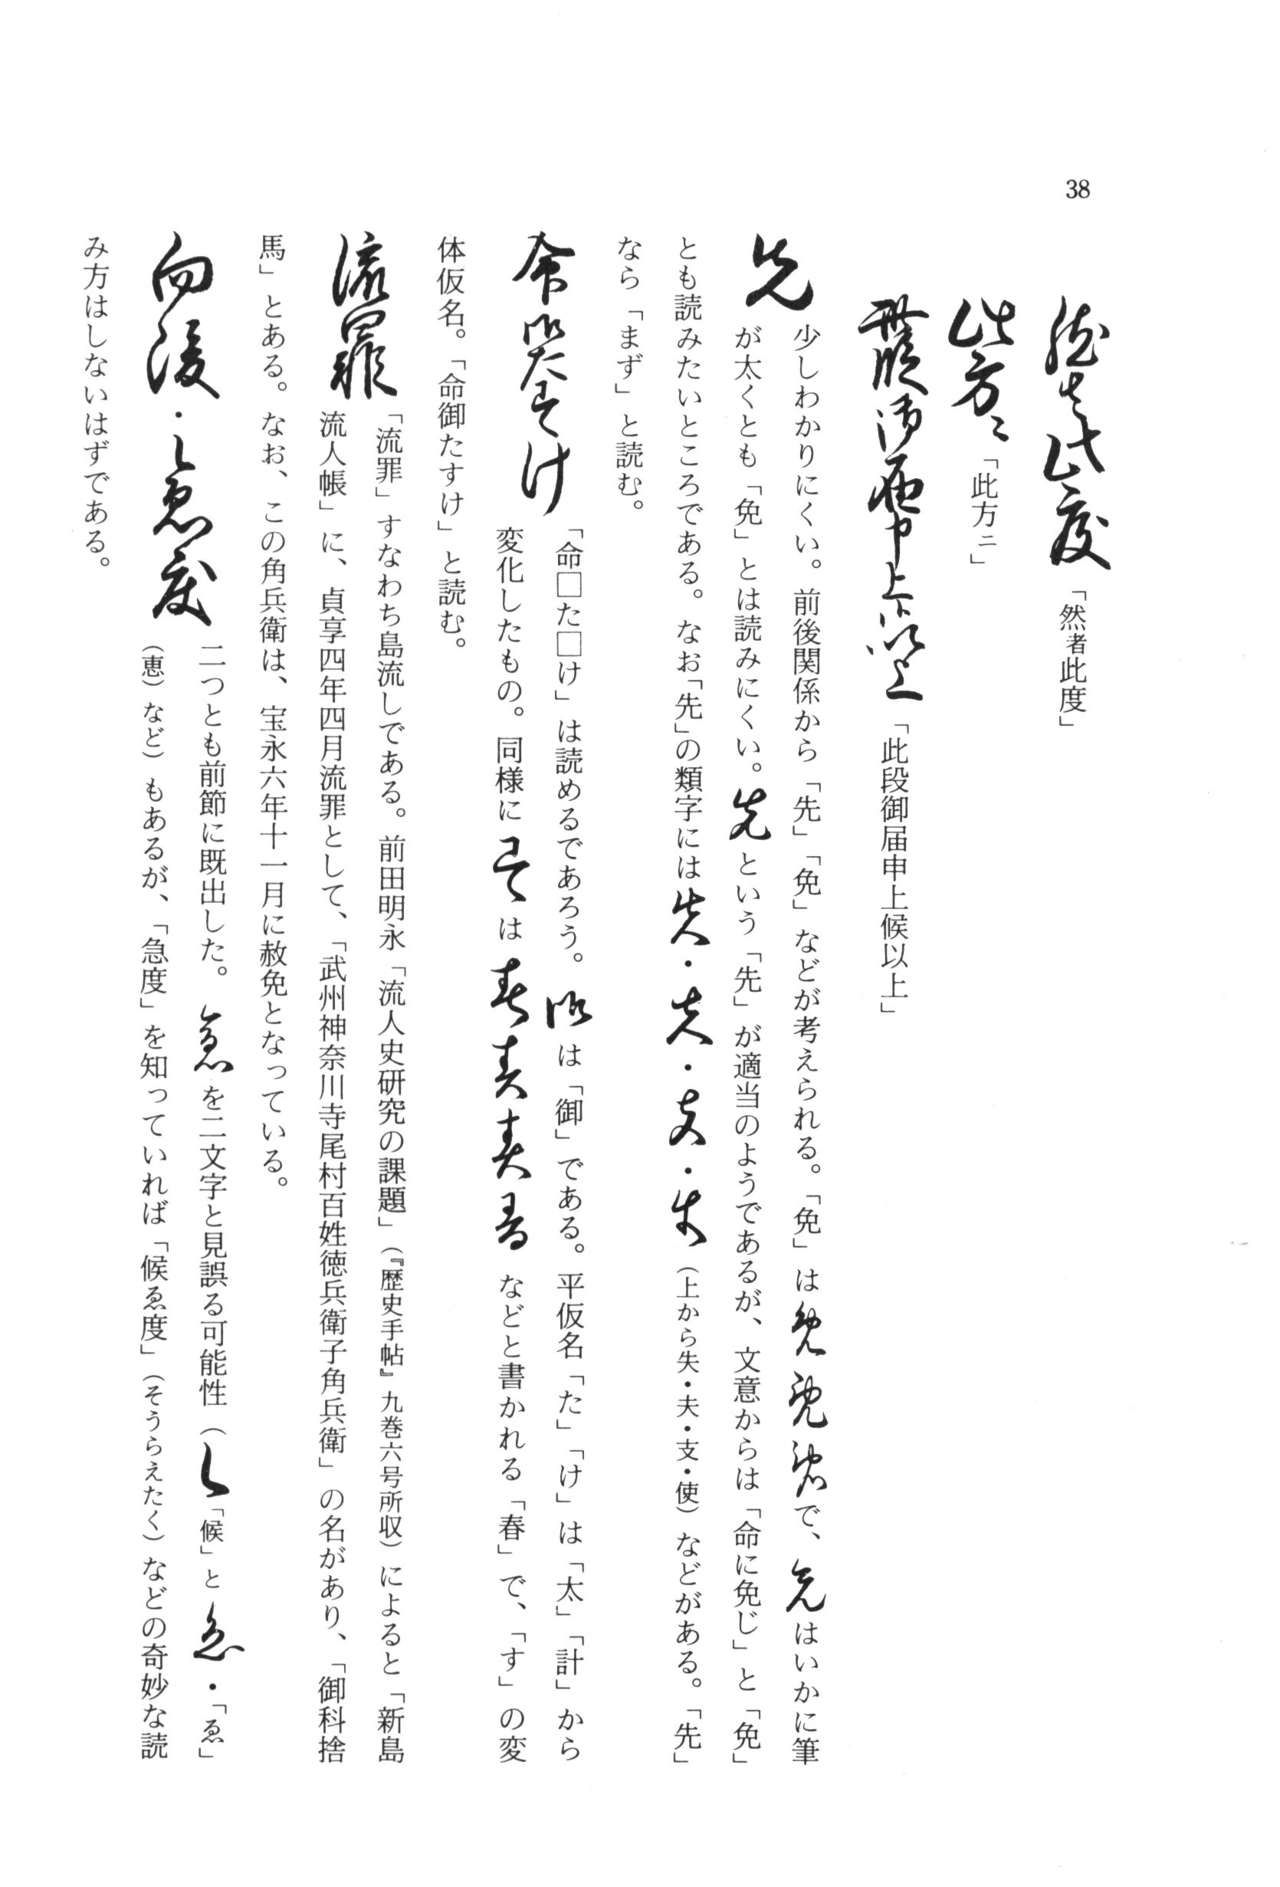 38
然者此度「然者此度」
此方ニ「此方ニ」
此段御届申上候以上「此段御届申上候以上」
先 少しわかりにくい。前後関係から「先」「免」などが考えられる。「免」は免免免で、先はいかに筆
が太くとも「免」とは読みにくい。先という「先」が適当のようであるが、文意からは「命に免じ」と「免」
とも読みたいところである。なお「先」の類字には失・夫・支・使（上から失・夫・支・使）などがある。「先」
なら「まず」と読む。
命御たすけ 「命□た□け」は読めるであろう。御は「御」である。平仮名「た」「け」は「太」「計」から
変化したもの。同様にすは春春春春などと書かれる「春」で、「す」の変
体仮名。「命御たすけ」と読む。
流罪 「流罪」すなわち島流しである。前田明永「流人史研究の課題」（『歴史手帖』九巻六号所収）によると「新島
流人帳」に、貞享四年四月流罪として、「武州神奈川寺尾村百姓徳兵衛子角兵衛」の名があり、「御科捨
馬」とある。なお、この角兵衛は、宝永六年十一月に赦免となっている。
向後・急度 二つとも前節に既出した。急を二文字と見誤る可能性（候「候」とゑ・「ゑ」
（恵）など）もあるが、「急度」を知っていれば「候ゑ度」（そうらえたく）などの奇妙な読
み方はしないはずである。